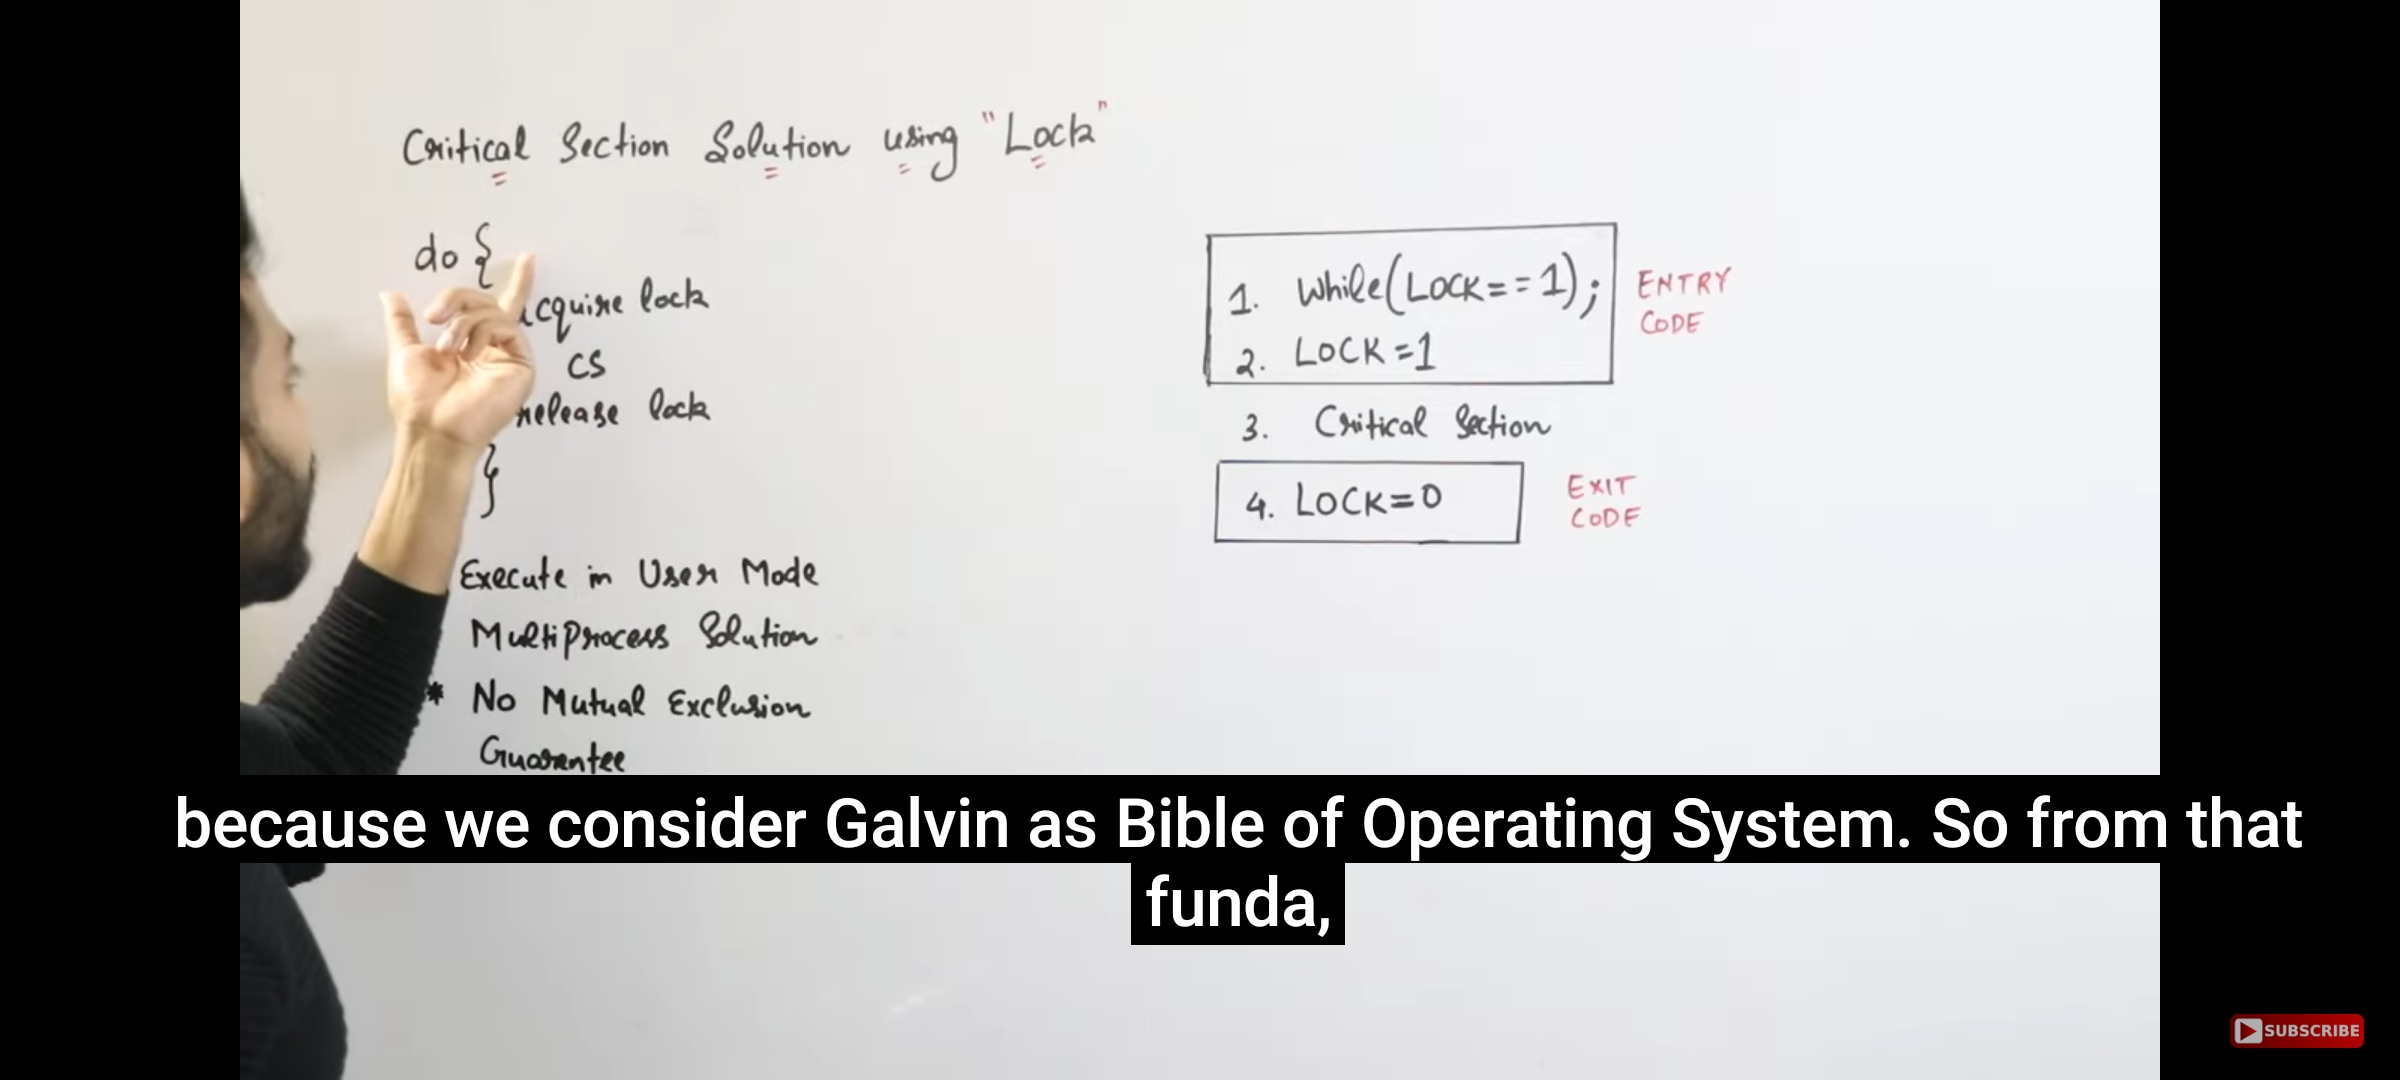 Critical Section Solution using "Lock"
do {
acquire lock
CS
release lock
}
Execute in User Mode
Multiprocess Solution
* No Mutual Exclusion
Guarantee
1. While(LOCK==1);
2. LOCK=1
ENTRY
CODE
3. Critical Section
4. LOCK=0
EXIT
CODE
because we consider Galvin as Bible of Operating System. So from that
funda,
SUBSCRIBE